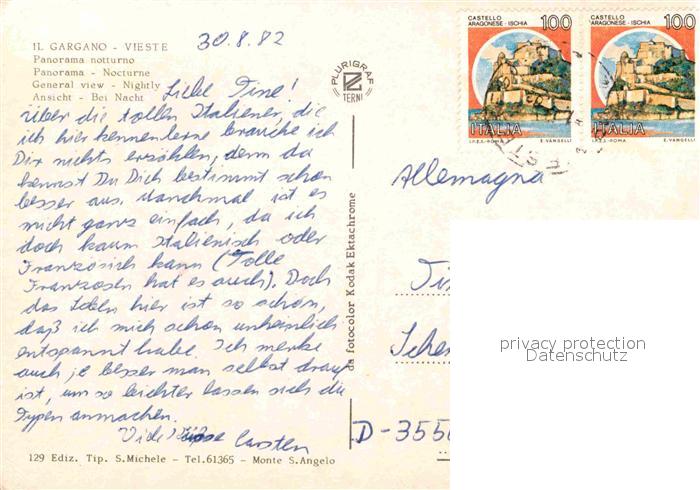 IL GARGANO - VIESTE
Panorama notturno
Panorama - Nocturne
General view - Nightly
Ansicht - Bei Nacht
30.8.82
Liebe Tine!
Über die tollen Italiener, die
ich hier kennenlerne brauche ich
Dir nichts erzählen, denn da
kennst Du Dich bestimmt schon
besser aus. Manchmal ist es
nicht ganz einfach, da ich
doch kaum Italienisch oder
Französich kann (Tolle
Franzosen hat es auch). Doch
das Leben hier ist so schön,
daß ich mich schon unheimlich
entspannt habe. Ich merke
auch je besser man selbst drauf
ist, um so leichter lassen sich die
Typen anmachen.
Viele Küsse Carsten
129 Ediz. Tip. S.Michele - Tel.61365 - Monte S.Angelo
PLURIGRAF
TERNI
da fotocolor Kodak Ektachrome
CASTELLO ARAGONESE - ISCHIA 100
ITALIA
I.P.Z.S.-ROMA E. VANGELLI
CASTELLO ARAGONESE - ISCHIA 100
ITALIA
I.P.Z.S.-ROMA E. VANGELLI
Allemagna
D-355
privacy protection
Datenschutz